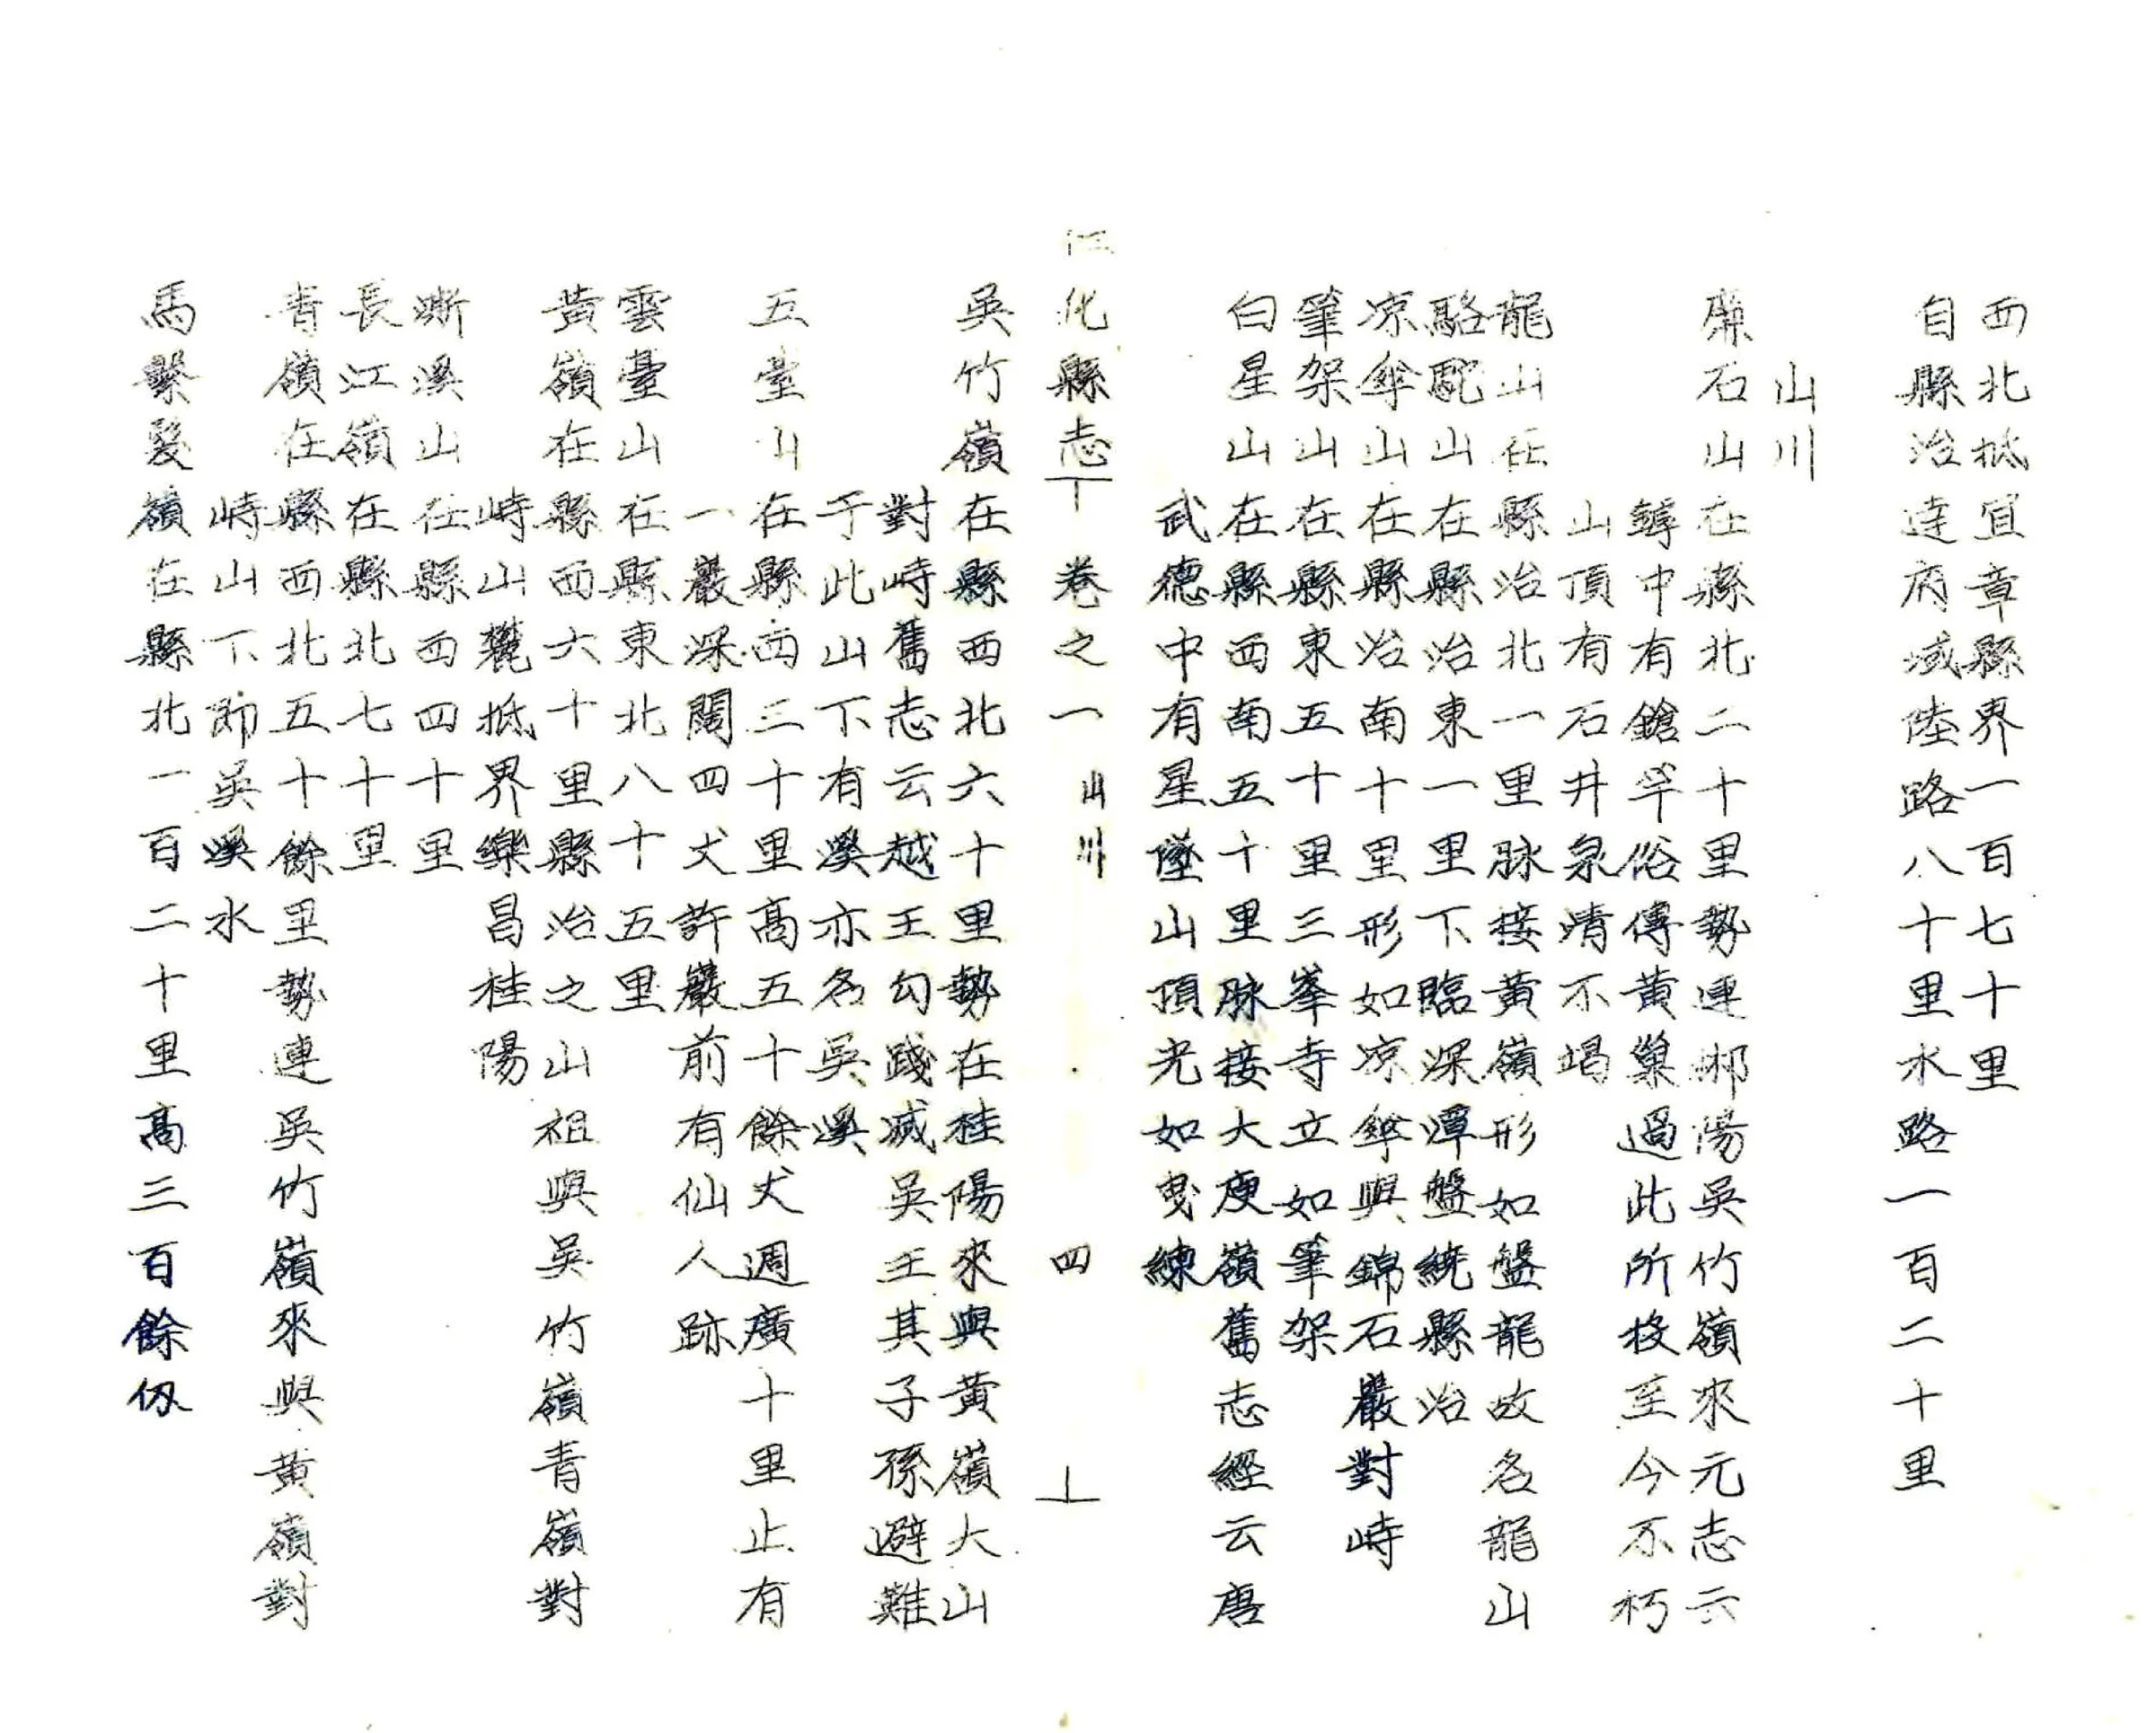 西北抵宜章縣界一百七十里
自縣治達府城陸路八十里水路一百二十里
山川
廉石山在縣北二十里勢連郴陽吳竹嶺來元志云
罅中有鎗竿俗傳黃巢過此所投至今不朽
山頂有石井泉清不竭
龍山在縣治北一里脉接黃嶺形如盤龍故名龍山
駱駝山在縣治東一里下臨深潭盤繞縣治
凉傘山在縣治南十里形如凉傘與錦石巖對峙
筆架山在縣東五十里三峯寺立如筆架
白星山在縣西南五十里脉接大庾嶺舊志經云唐
武德中有星墜山頂光如曳練
仁化縣志 卷之一 山川 四
吳竹嶺在縣西北六十里勢在桂陽來與黃嶺大山
對峙舊志云越王勾踐滅吳王其子孫避難
于此山下有溪亦名吳溪
五臺山在縣西二十里高五十餘丈週廣十里止有
一巖深闊四丈許巖前有仙人跡
雲臺山在縣東北八十五里
黃嶺在縣西六十里縣治之山祖與吳竹嶺青嶺對
峙山麓抵界樂昌桂陽
漸溪山在縣西四十里
長江嶺在縣北七十里
青嶺在縣西北五十餘里勢連吳竹嶺來與黃嶺對
峙山下即吳溪水
馬鬃嶺在縣北一百二十里高三百餘仞